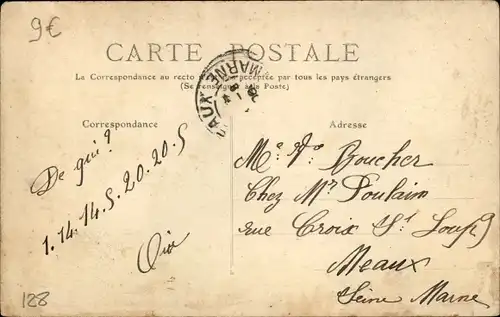 9€
CARTE POSTALE
La Correspondance au recto n'est pas acceptée par tous les pays étrangers
(Se renseigner à la Poste)
MARNE
Correspondance
Adresse
De qui?
1.14.14.5.20.20.5
Boucher
Chez Mr Poulain
rue Croix St Loup 9
Meaux
Seine Marne
128